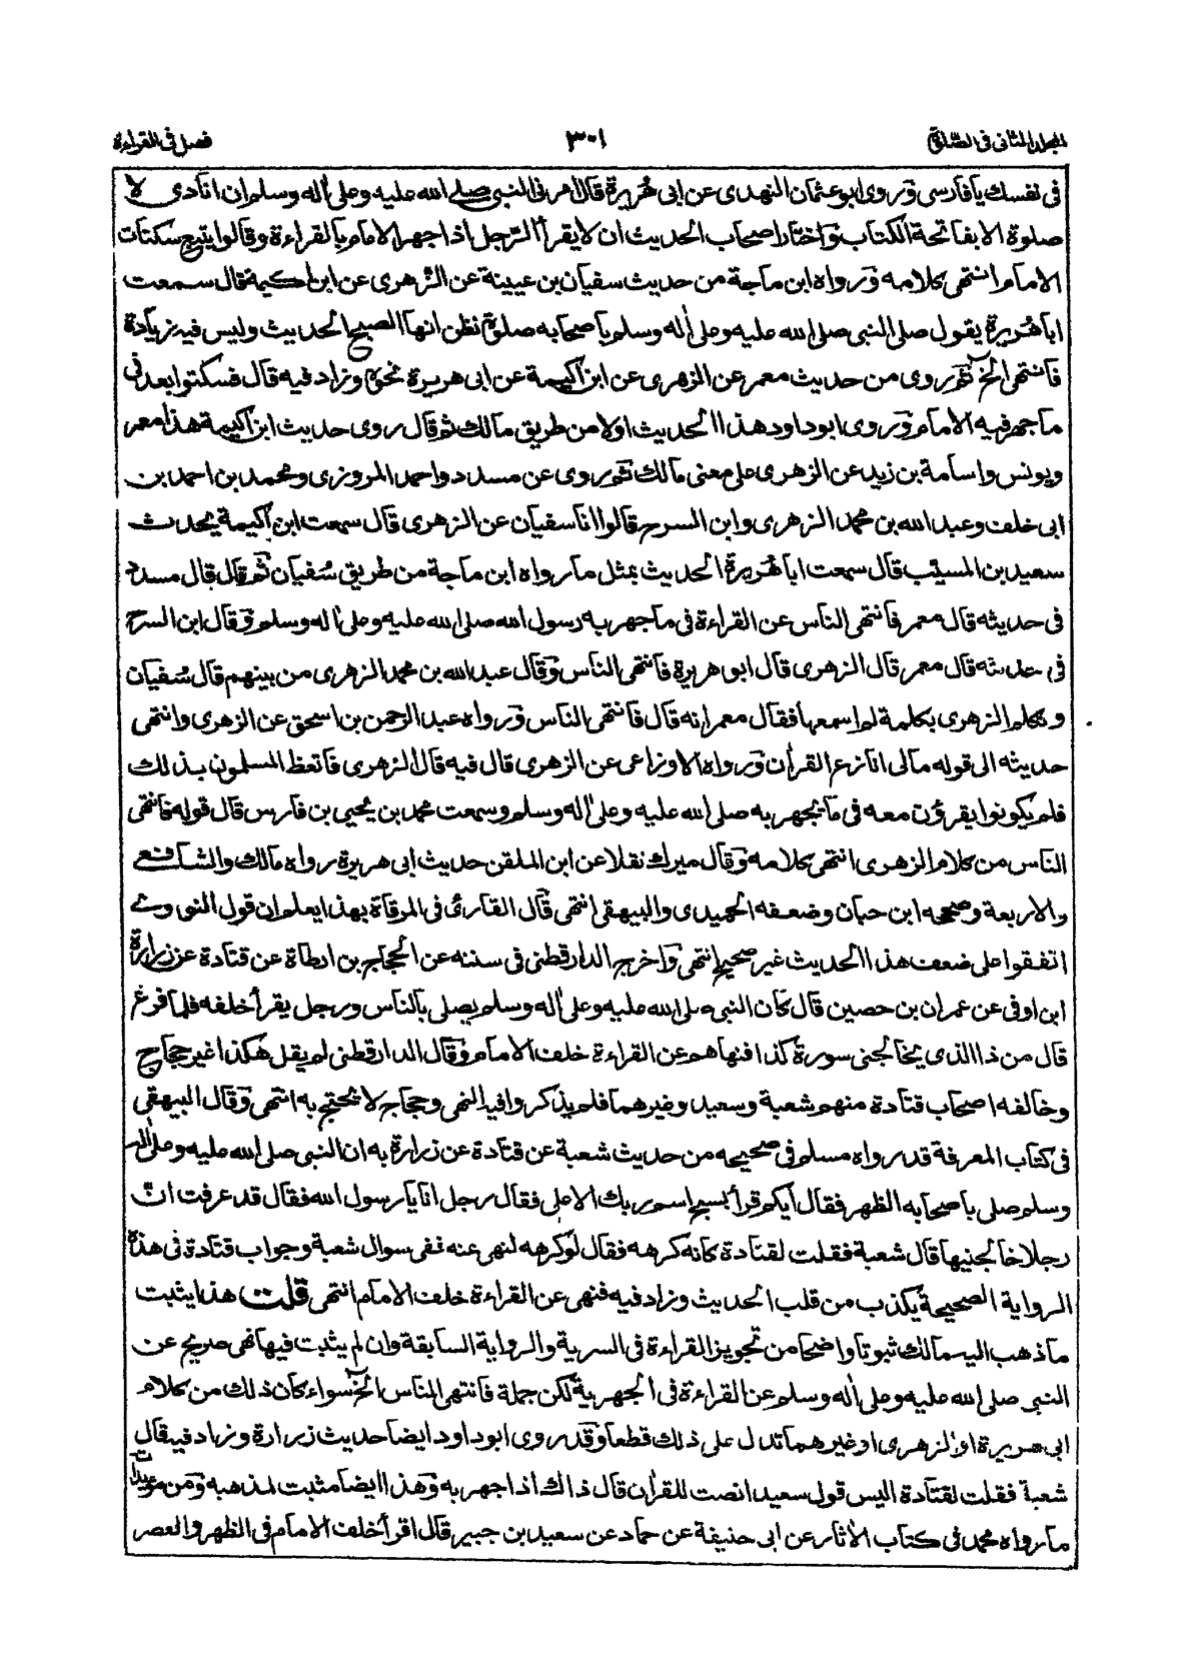 المجلد الثانى فى الصلوة
٣٠١
فصل فى القراءة
فى نفسك يا فارسى وروى ابو عثمان النهدى عن ابى هريرة قال امرنى النبى صلى الله عليه وعلى اله وسلم ان انادى لا
صلوة الا بفاتحة الكتاب واختار اصحاب الحديث ان لا يقرأ الرجل اذا جهر الامام بالقراءة وقالوا يتبع سكتات
الامام انتهى كلامه ورواه ابن ماجة من حديث سفيان بن عيينة عن الزهرى عن ابن اكيمة قال سمعت
ابا هريرة يقول صلى النبى صلى الله عليه وعلى اله وسلم باصحابه صلوة نظن انها الصبح الحديث وليس فيه زيادة
فانتهى الخ ثم روى من حديث معمر عن الزهرى عن ابن اكيمة عن ابى هريرة نحوه وزاد فيه قال فسكتوا بعد فى
ما جهر فيه الامام وروى ابو داود هذا الحديث اولا من طريق مالك ثم قال روى حديث ابن اكيمة هذا معمر
ويونس واسامة بن زيد عن الزهرى على معنى مالك ثم روى عن مسدد واحمد المروزى ومحمد بن احمد بن
ابى خلف وعبد الله بن محمد الزهرى وابن السرح قالوا انا سفيان عن الزهرى قال سمعت ابن اكيمة يحدث
سعيد بن المسيب قال سمعت ابا هريرة الحديث بمثل ما رواه ابن ماجة من طريق سفيان ثم قال قال مسدد
فى حديثه قال معمر فانتهى الناس عن القراءة فى ما جهر به رسول الله صلى الله عليه وعلى اله وسلم وقال ابن السرح
فى حديثه قال معمر قال الزهرى قال ابو هريرة فانتهى الناس وقال عبد الله بن محمد الزهرى من بينهم قال سفيان
وتكلم الزهرى بكلمة لم اسمعها فقال معمر انه قال فانتهى الناس ورواه عبد الرحمن بن اسحق عن الزهرى وانتهى
حديثه الى قوله مالى انازع القران ورواه الاوزاعى عن الزهرى قال فيه قال الزهرى فاتعظ المسلمون بذلك
فلم يكونوا يقرؤن معه فى ما يجهر به صلى الله عليه وعلى اله وسلم وسمعت محمد بن يحيى بن فارس قال قوله فانتهى
الناس من كلام الزهرى انتهى كلامه وقال ميرك نقلا عن ابن الملقن حديث ابى هريرة رواه مالك والشافعى
والاربعة وصححه ابن حبان وضعفه الحميدى والبيهقى انتهى قال القارئ فى المرقاة بهذا يعلم ان قول النووى
اتفقوا على ضعف هذا الحديث غير صحيح انتهى واخرج الدارقطنى فى سننه عن الحجاج بن ارطاة عن قتادة عن زرارة
ابن اوفى عن عمران بن حصين قال كان النبى صلى الله عليه وعلى اله وسلم يصلى بالناس ورجل يقرأ خلفه فلما فرغ
قال من ذا الذى يخالجنى سورة كذا فنهاهم عن القراءة خلف الامام وقال الدارقطنى لم يقل هكذا غير حجاج
وخالفه اصحاب قتادة منهم شعبة وسعيد وغيرهما فلم يذكروا فيه النهى وحجاج لا يحتج به انتهى وقال البيهقى
فى كتاب المعرفة قد رواه مسلم فى صحيحه من حديث شعبة عن قتادة عن زرارة به ان النبى صلى الله عليه وعلى اله
وسلم صلى باصحابه الظهر فقال ايكم قرأ بسبح اسم ربك الاعلى فقال رجل انا يا رسول الله فقال قد عرفت ان
رجلا خالجنيها قال شعبة فقلت لقتادة كانه كرهه فقال لو كرهه لنهى عنه ففى سوال شعبة وجواب قتادة فى هذه
الرواية الصحيحة يكذب من قلب الحديث وزاد فيه فنهى عن القراءة خلف الامام انتهى قلت هذا يثبت
ما ذهب اليه مالك ثبوتا واضحا من تجويز القراءة فى السرية والرواية السابقة وان لم يثبت فيها نهى صريح عن
النبى صلى الله عليه وعلى اله وسلم عن القراءة فى الجهرية لكن جملة فانتهى الناس الخ سواء كان ذلك من كلام
ابى هريرة او الزهرى او غيرهما تدل على ذلك قطعا وقد روى ابو داود ايضا حديث زرارة وزاد فيه قال
شعبة فقلت لقتادة اليس قول سعيد انصت للقران قال ذالك اذا جهر به وهذا ايضا مثبت لمذهبه ومن مويداته
ما رواه محمد فى كتاب الاثار عن ابى حنيفة عن حماد عن سعيد بن جبير قال اقرأ خلف الامام فى الظهر والعصر